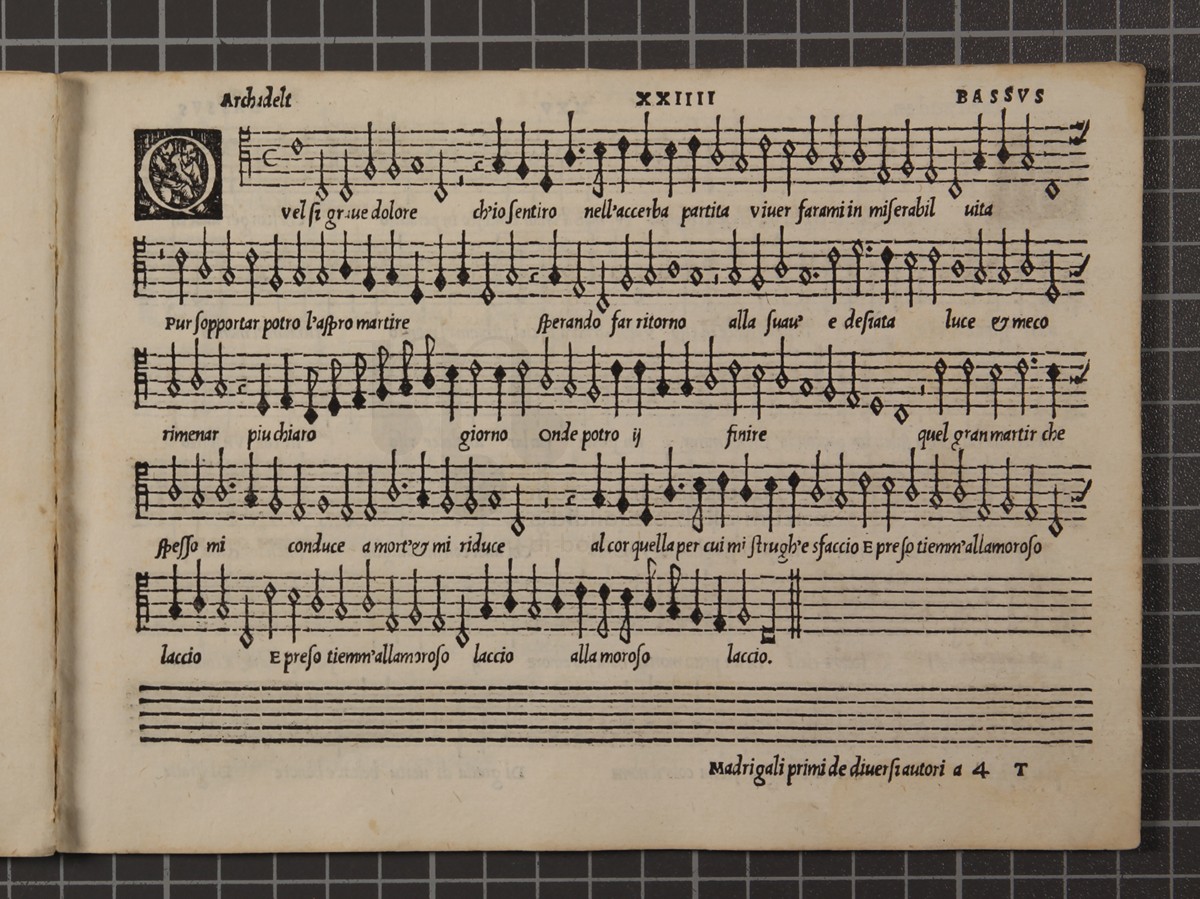 Archidelt XXIIII BASSVS
Q
vel si graue dolore ch'io sentiro nell'accerba partita viuer farami in miserabil uita
Pur sopportar potro l'aspro martire sperando far ritorno alla suau' e desiata luce & meco
rimenar piu chiaro giorno Onde potro ij finire quel gran martir che
spesso mi conduce a mort'& mi riduce al cor quella per cui mi strugh'e sfaccio E preso tiemm'allamoroso
laccio E preso tiemm'allamoroso laccio alla moroso laccio.
Madrigali primi de diuersi autori a 4 T